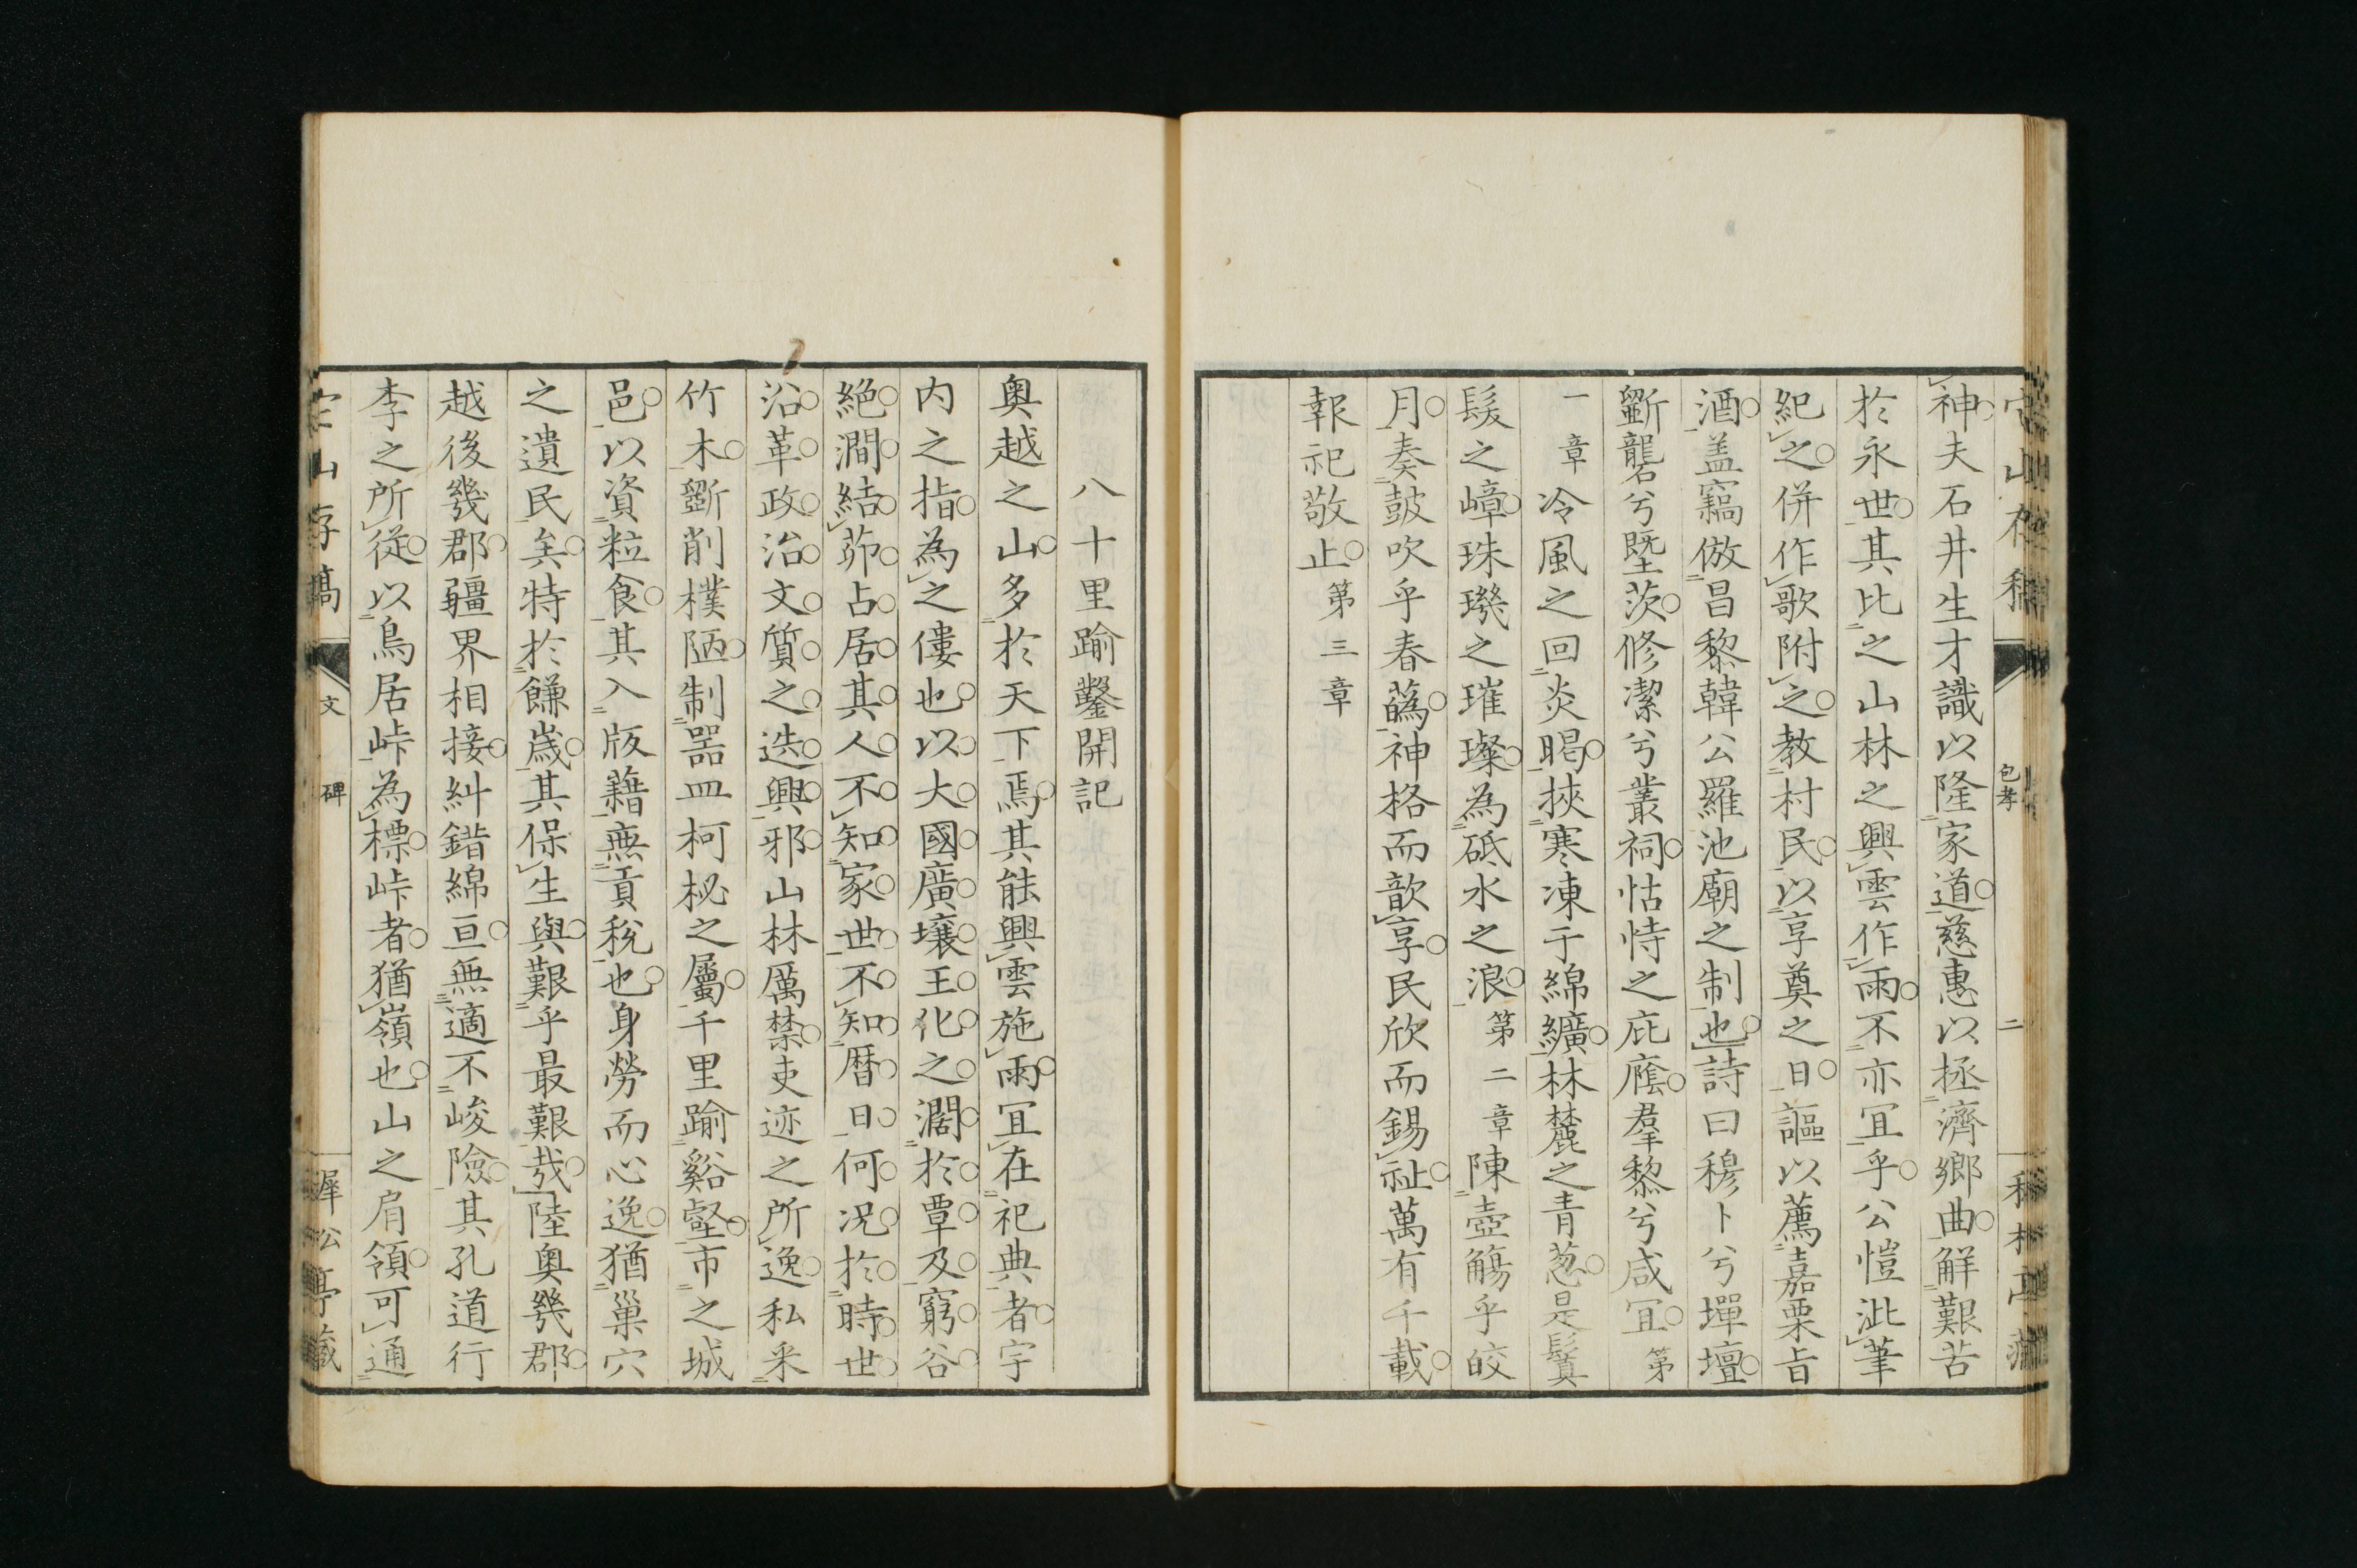 神夫石井生才識以隆家道慈惠以拯濟鄉曲解艱苦
於永世其比之山林之興雲作雨不亦冝乎公愷泚筆
紀之併作歌附之教村民以享奠之日謳以薦嘉栗旨
酒盖竊倣昌黎韓公羅池廟之制也詩曰穆卜兮墠壇
斵礱兮墍茨修潔兮叢祠怙恃之庇廕羣黎兮咸冝第
一章冷風之回炎暍挾寒凍于綿纊林麓之青葱是鬒
髮之嶂珠璣之璀璨為砥水之浪第二章陳壺觴乎皎
月奏鼓吹乎春蔿神格而歆享民欣而錫祉萬有千載
報祀敬止第三章
八十里踰鑿開記
奥越之山多於天下焉其能興雲施雨冝在祀典者宇
内之指為之僂也以大國廣壤王化之濶於覃及窮谷
絶澗結茆占居其人不知家世不知暦日何況於時世
沿革政治文質之迭興邪山林厲禁吏迹之所逸私采
竹木斵削樸陋制噐皿柯柲之屬千里踰谿壑市之城
邑以資粒食其入版藉無貢稅也身勞而心逸猶巢穴
之遺民矣特於饑歲其保生與艱乎最艱哉陸奥幾郡
越後幾郡疆界相接糾錯綿亘無適不峻險其孔道行
李之所從以鳥居峠為標峠者猶嶺也山之肩領可通
文
碑
二